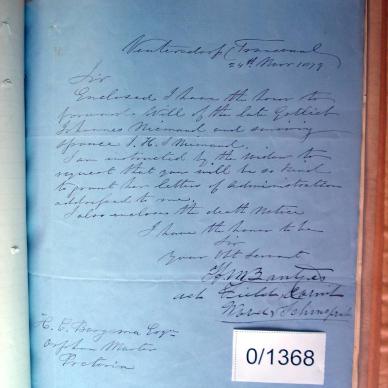 Ventersdorp Transvaal
24th Novr 1879
Sir
Enclosed I have the honor to
forward Will of the late Gotlieb
Johannes Niemand and surviving
spouse J. H. S Niemand.
I am instructed by the widow to
request that you will be so kind
to grant her letters of administration
addressed to me.
I also enclose the death Notice
I have the honor to be
Sir
Your Obt Servant
act Field Cornet
Ward Schoonspruit
H. C. Bergsma Esqre
Orphan Master
Pretoria
0/1368